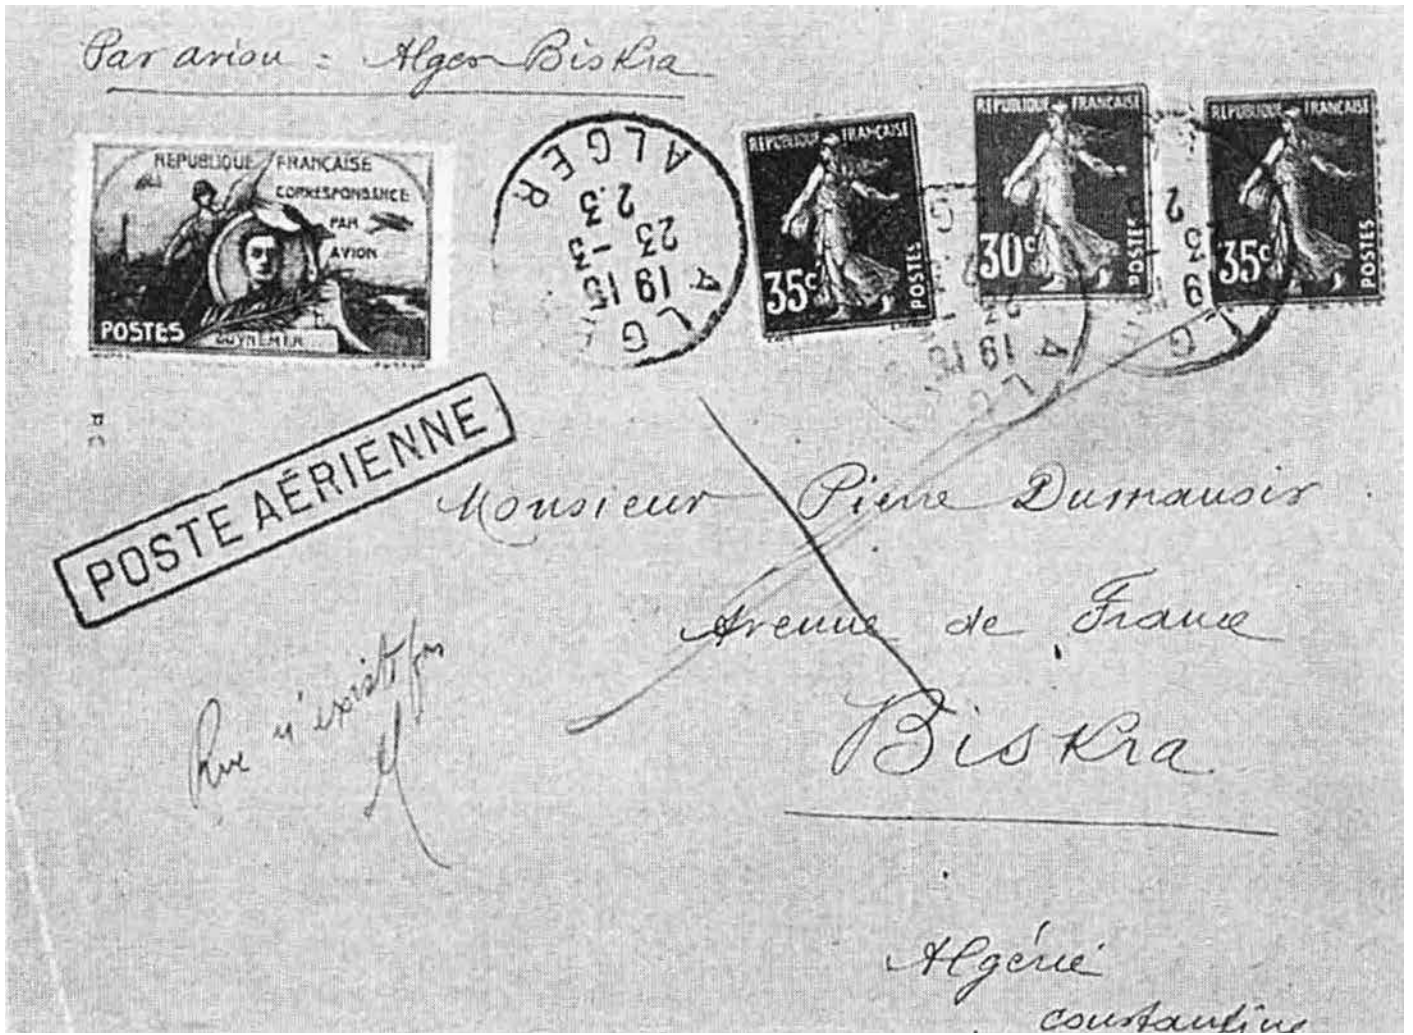 Par avion = Alger Biskra
RÉPUBLIQUE FRANÇAISE
CORRESPONDANCE
PAR
AVION
POSTES
GUYNEMER
ALGER ALG
19 15
23 -3
23
RÉPUBLIQUE FRANÇAISE
35c POSTES
RÉPUBLIQUE FRANÇAISE
30c POSTES
RÉPUBLIQUE FRANÇAISE
35c POSTES
POSTE AÉRIENNE
Monsieur Pierre Dumanoir
Avenue de France
Biskra
Rue n'existe pas
Algérie
constantine